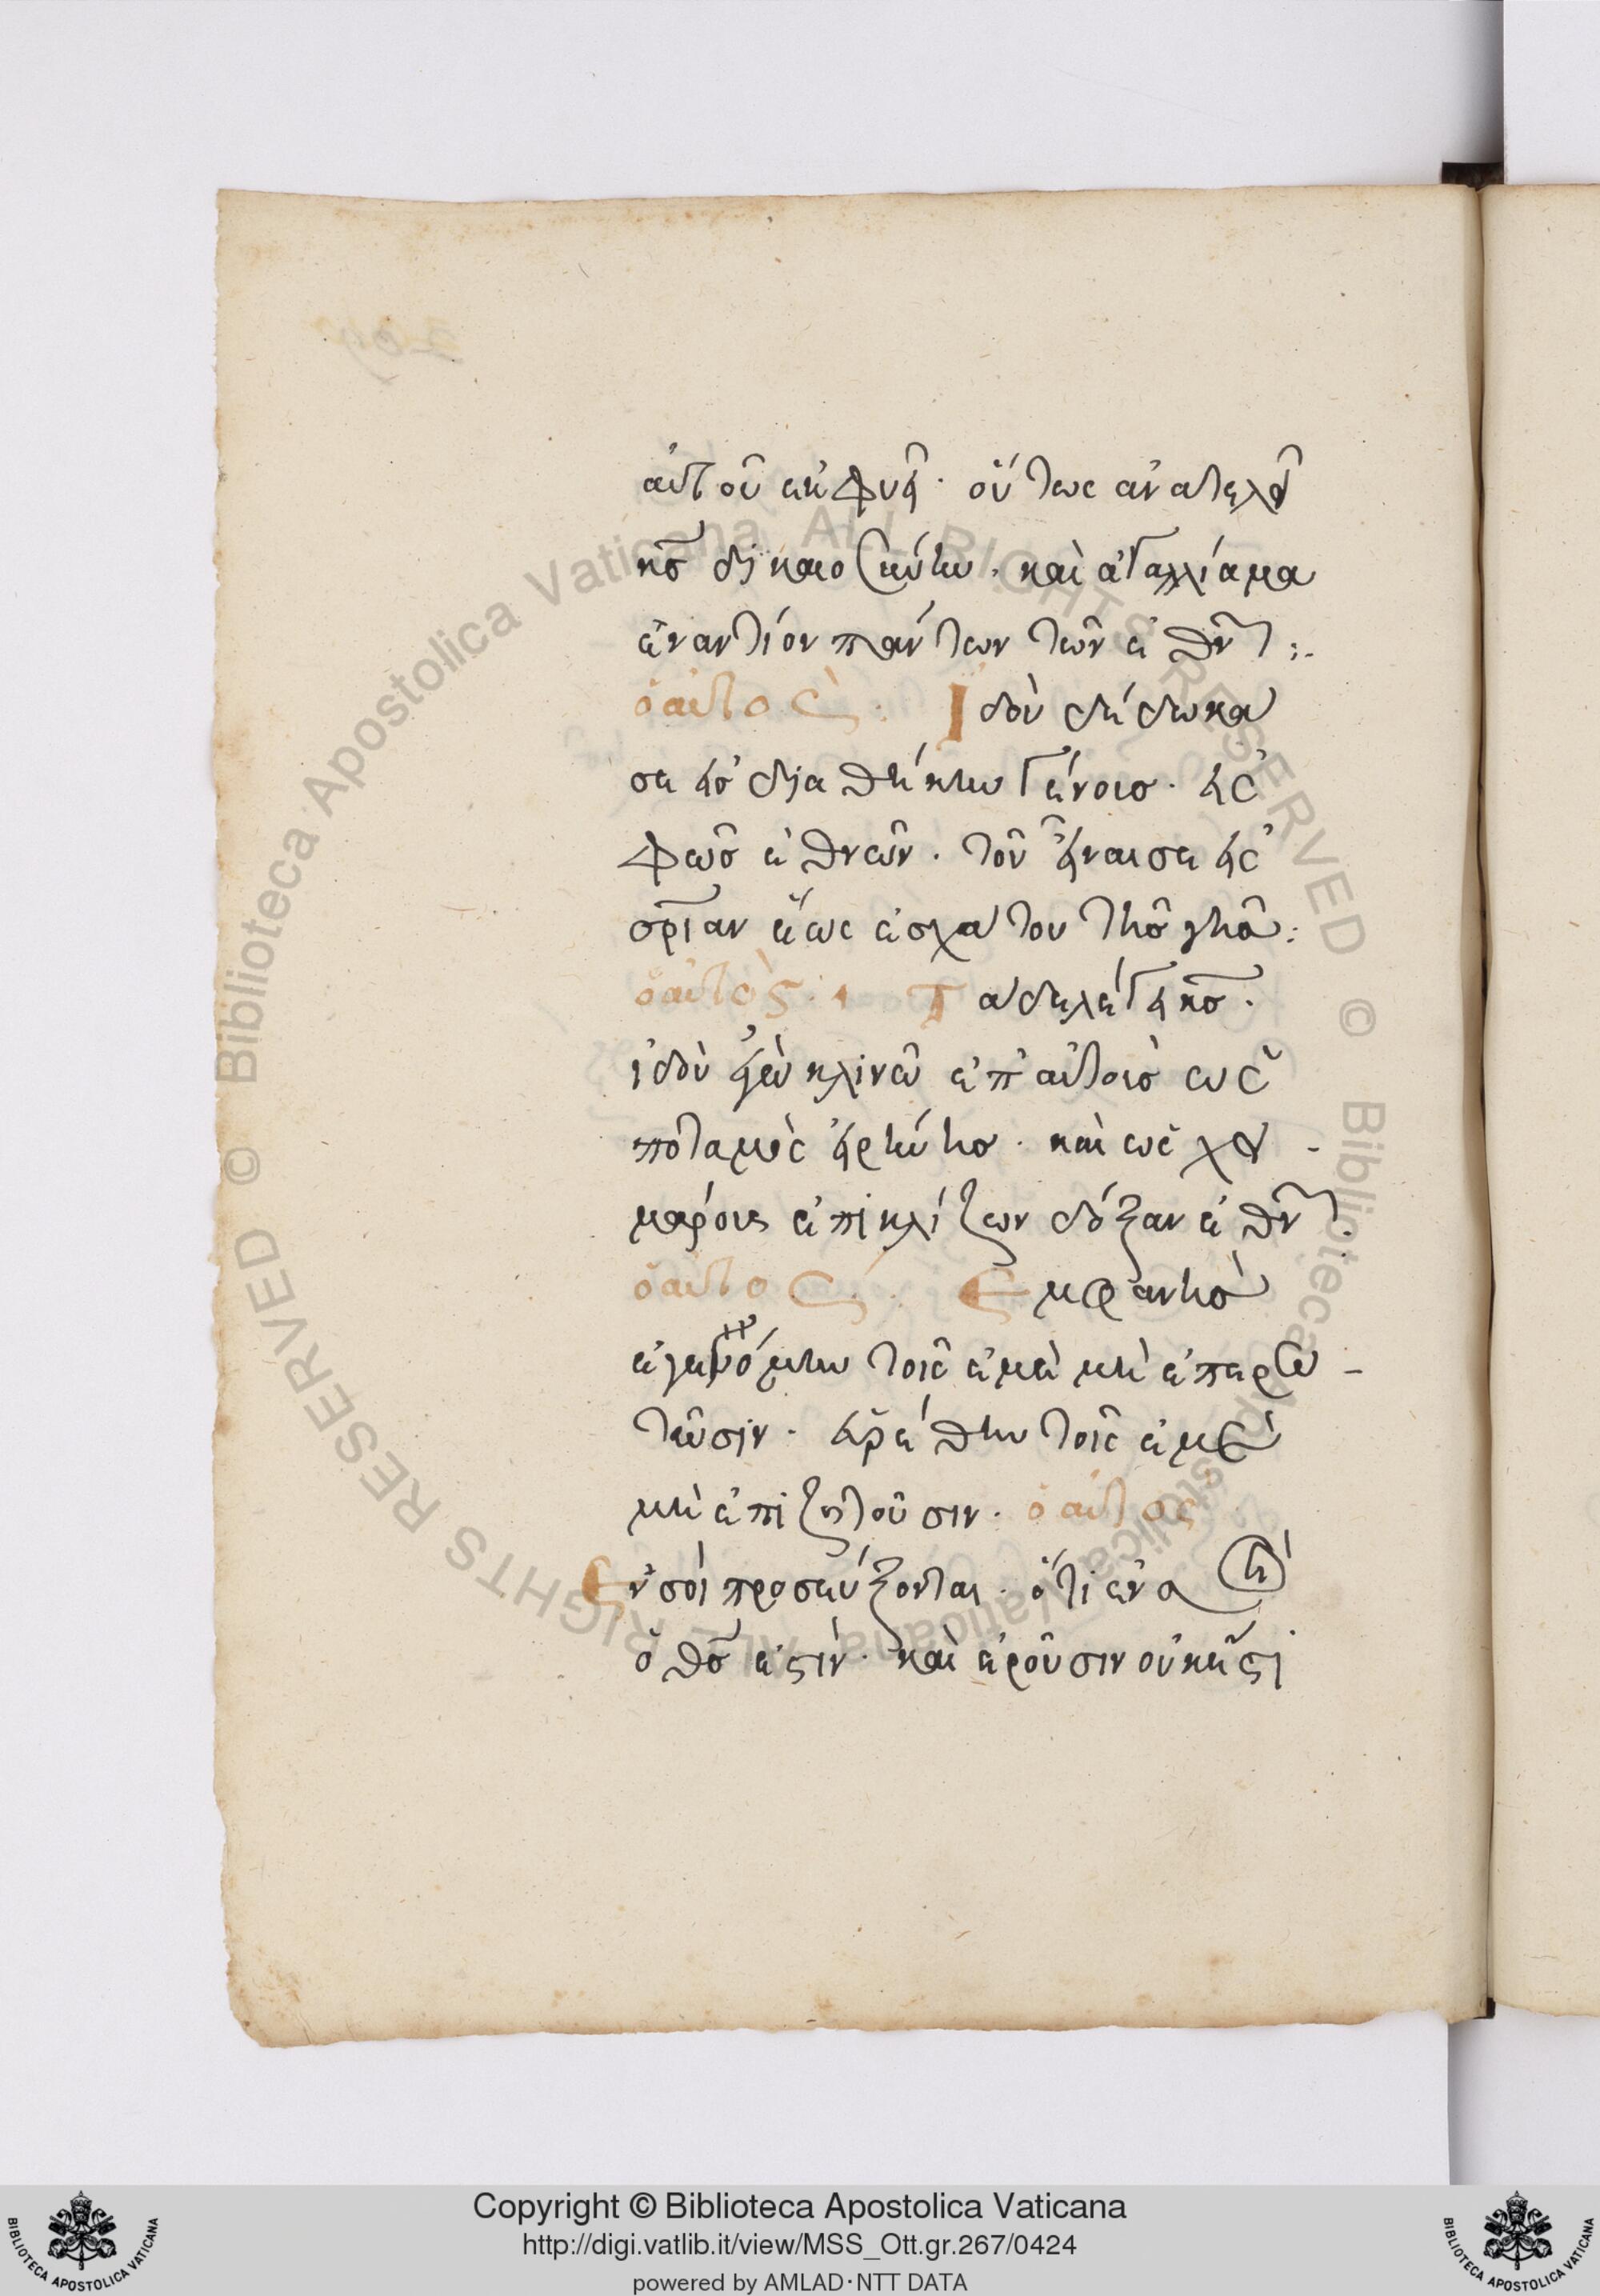 αὐτοῦ ἐκφυεῖ· οὕτως ἀνατελεῖ
κς̅ δικαιοσύνην· καὶ ἀγαλλίαμα
ἐναντίον πάντων τῶν ἐθνῶν:-
ὁ αὐτός· Ἰδοὺ δέδωκα
σε εἰς διαθήκην γένους· εἰς
φῶς ἐθνῶν· τοῦ εἶναι σε εἰς
σρ̅ιαν ἕως ἐσχάτου τῆς γῆς:
ὁ αὐτὸς· Τάδε λέγει κς̅·
ἰδοὺ ἐγὼ κλινῶ ἐπ' αὐτοὺς ὡς
ποταμὸς εἰρήνης· καὶ ὡς χει-
μάρους ἐπικλίζων δόξαν ἐθνῶν·
ὁ αὐτός· Ἐμφανὴς
ἐγενόμην τοῖς ἐμὲ μὴ ἐπερω-
τῶσιν· εὑρέθην τοῖς ἐμὲ
μὴ ἐπιζητοῦσιν· ὁ αὐτός
Ἐν σοὶ προσεύξονται· ὅτι ἐν σοὶ
ὁ θς̅ ἐστιν· καὶ ἐροῦσιν οὐκ ἔστι
Copyright © Biblioteca Apostolica Vaticana
http://digi.vatlib.it/view/MSS_Ott.gr.267/0424
powered by AMLAD·NTT DATA